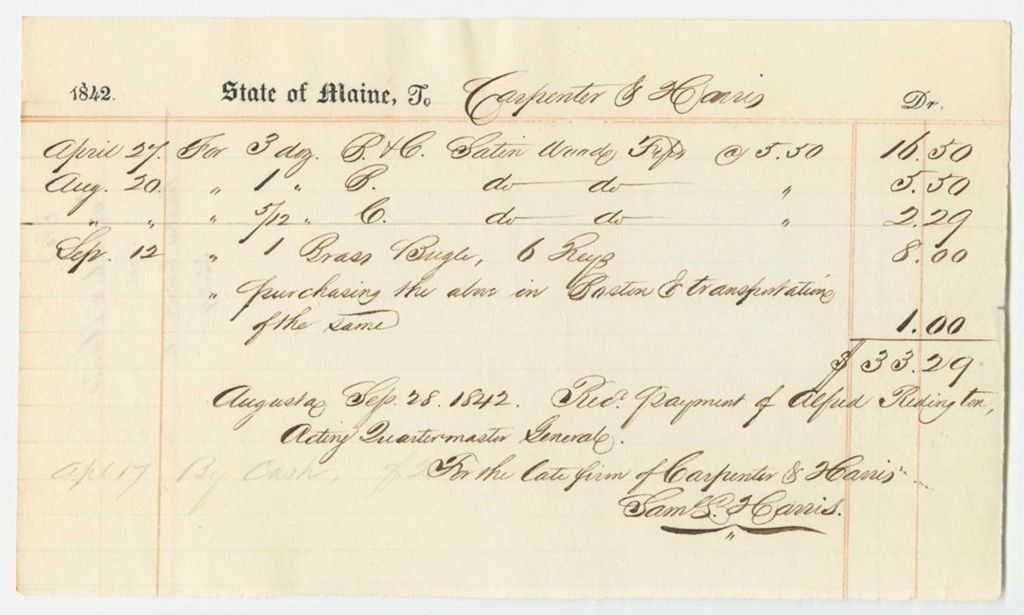 1842. State of Maine, To Carpenter & Harris Dr.
April 27. For 3 doz. P. & C. Satin Woods Tops @ 5.50 16.50
Aug. 20. " 1 " P. do do " 5.50
" " " 5/12 " C. do do " 2.29
Sep. 12 " 1 Brass Bugle, 6 Keys 8.00
" purchasing the above in Boston & transportation
of the same 1.00
$ 33.29
Augusta Sep. 28. 1842. Recd. payment of Alfred Redington,
Acting Quartermaster General.
Apl 17 By Cash, For the late firm of Carpenter & Harris
Saml. L. Harris.